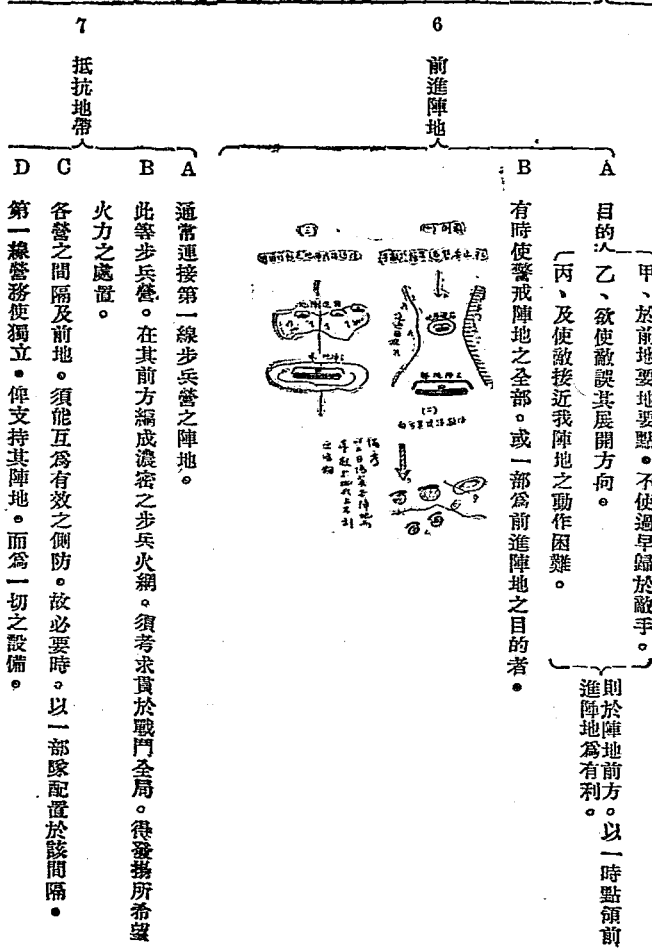 6 前進陣地
A 目的
甲、於前地要地要點。不使過早歸於敵手。
乙、欲使敵誤其展開方向。
丙、及使敵接近我陣地之動作困難。
則於陣地前方。以一時點領前
進陣地爲有利。
B 有時使警戒陣地之全部。或一部爲前進陣地之目的者。
7 抵抗地帶
A 通常連接第一線步兵營之陣地。
B 此等步兵營。在其前方編成濃密之步兵火網。須考求貫於戰鬥全局。得發揚所希望
火力之處置。
C 各營之間隔及前地。須能互爲有效之側防。故必要時。以一部隊配置於該間隔。
D 第一線營務使獨立。俾支持其陣地。而爲一切之設備。